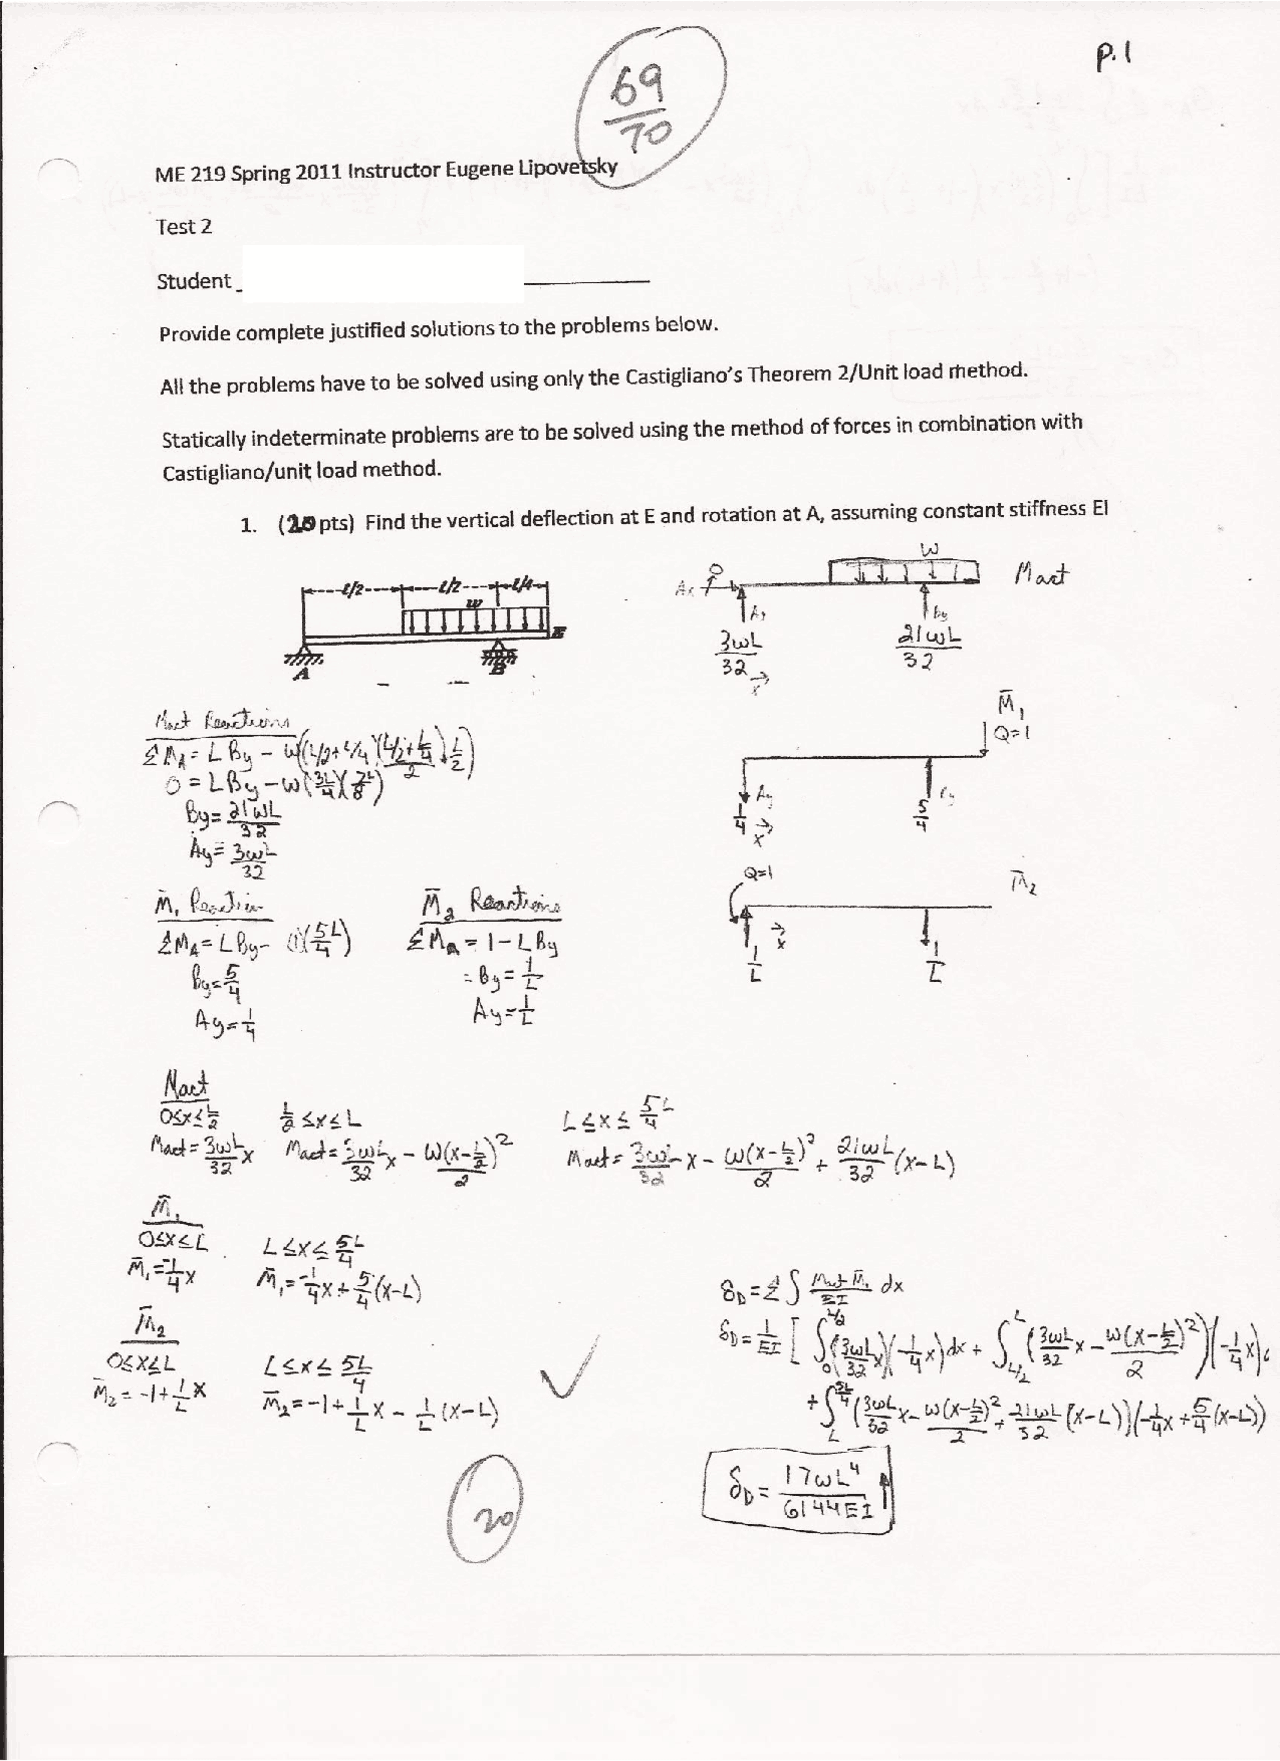 p.1
69
70
ME 219 Spring 2011 Instructor Eugene Lipovetsky
Test 2
Student _
Provide complete justified solutions to the problems below.
All the problems have to be solved using only the Castigliano's Theorem 2/Unit load method.
Statically indeterminate problems are to be solved using the method of forces in combination with
Castigliano/unit load method.
1. (20 pts) Find the vertical deflection at E and rotation at A, assuming constant stiffness EI
ℓ/2 ℓ/2 ℓ/4
w
A B E
w
Mact
Ax Ay By
3wL/32 21wL/32
x
Mact Reactions
ΣMA = LBy - w(L/2+L/4)((L/2+L/4)/2+L/2)
0 = LBy - w(3L/4)(7L/8)
By = 21wL/32
Ay = 3wL/32
M̄1
Q=1
Ay By
1/4 5/4
x
M̄1 Reaction
ΣMA = LBy - (1)(5L/4)
By = 5/4
Ay = 1/4
M̄2 Reactions
ΣMA = 1 - LBy
= By = 1/L
Ay = 1/L
Q=1
M̄2
x
1/L 1/L
Mact
0≤x≤L/2 L/2≤x≤L L≤x≤5/4L
Mact = 3wL/32 x Mact = 3wL/32 x - w(x-L/2)²/2 Mact = 3wL/32 x - w(x-L/2)²/2 + 21wL/32 (x-L)
M̄1
0≤x≤L L≤x≤5/4L
M̄1 = -1/4x M̄1 = -1/4x + 5/4(x-L)
M̄2
0≤x≤L L≤x≤5L/4
M̄2 = -1+1/L x M̄2 = -1+1/L x - 1/L (x-L)
δD = Σ∫ Mact M̄1/EI dx
δD = 1/EI [ ∫₀^L/2 (3wL/32 x)(-1/4x)dx + ∫L/2^L (3wL/32 x - w(x-L/2)²/2)(-1/4x)d
+ ∫L^5L/4 (3wL/32 x - w(x-L/2)²/2 + 21wL/32 (x-L))(-1/4x + 5/4(x-L))
δD = 17wL⁴/6144EI ↑
20